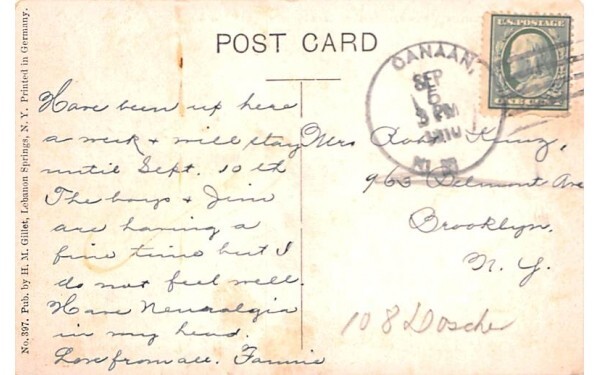 POST CARD
U.S. POSTAGE
CANAAN,
SEP
5
3 PM
1910
Have been up here
a week & will stay
until Sept. 10th
The boys & Jim
are having a
fine time but I
do not feel well.
Have Neuralgia
in my head.
Love from all. Fannie
Mrs Kunz,
963 Belmont Ave
Brooklyn.
N. Y.
108 Doscher
No. 397. Pub. by H. M. Gillet, Lebanon Springs, N. Y. Printed in Germany.